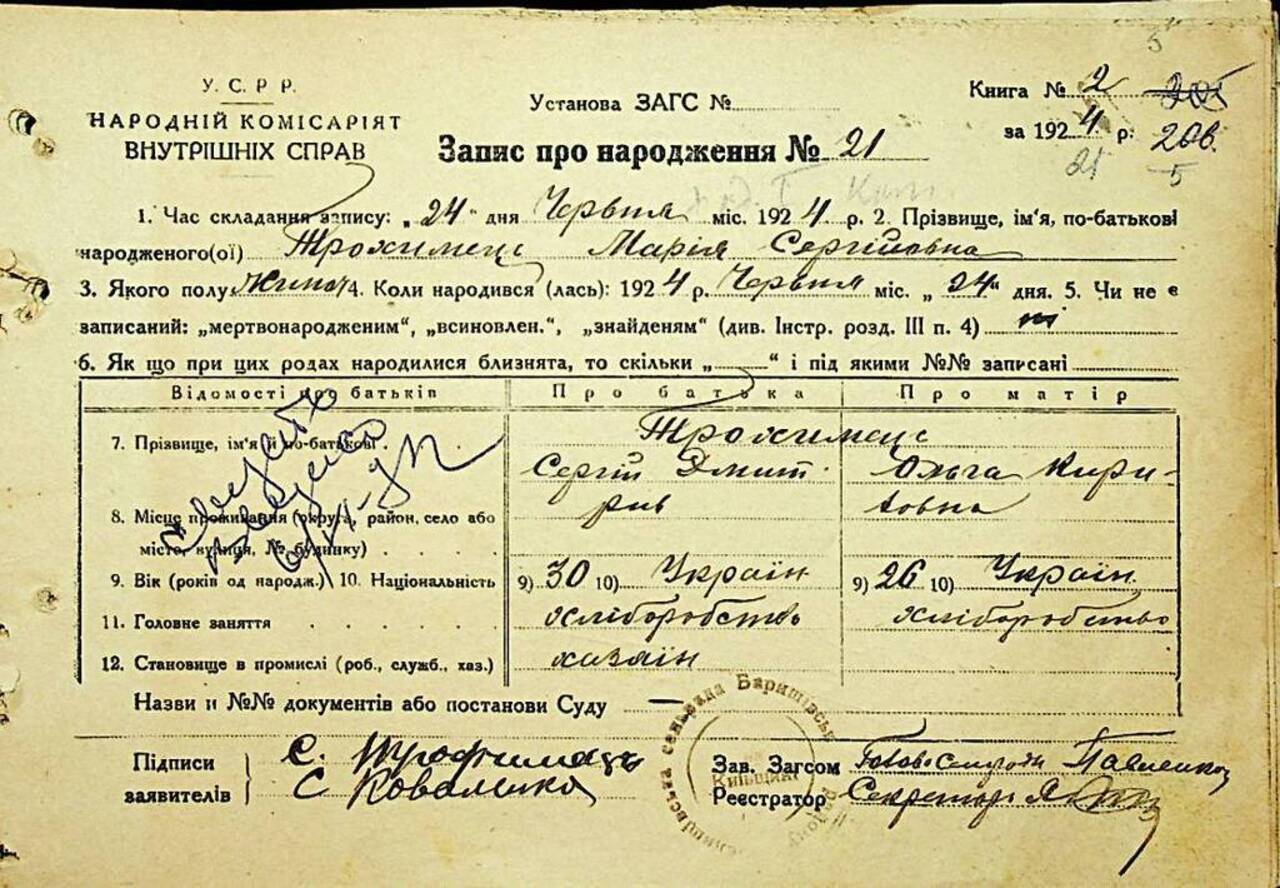 5
У. С. Р. Р.
НАРОДНІЙ КОМІСАРІЯТ
ВНУТРІШНІХ СПРАВ
Установа ЗАГС №
Книга № 2
за 1924 р.
20в.
21
5
Запис про народження № 21
1. Час складання запису: „24" дня Червня міс. 1924 р. 2. Прізвище, ім'я, по-батькові
народженого(ої) Трохимець Марія Сергійовна
3. Якого полу 4. Коли народився (лась): 1924 р. Червня міс. „24" дня. 5. Чи не є
записаний: „мертвонародженим", „всиновлен.", „знайденям" (див. Інстр. розд. III п. 4) ні
6. Як що при цих родах народилися близнята, то скільки „ " і під якими №№ записані
Відомості про батьків Про батька Про матір
7. Прізвище, ім'я й по-батькові. Трохимець
Сергій Дмитрів Ольга Кириловна
8. Місце проживання (округа, район, село або
місто, вулиця, № будинку)
9. Вік (років од народж.) 10. Національність 9) 30 10) Україн 9) 26 10) Україн
11. Головне заняття хліборобство хліборобство
12. Становище в промислі (роб., служб., хаз.) хазяїн
Назви и №№ документів або постанови Суду —
Підписи заявителів
С. Трофимець
С Коваленко
Зав. Загсом Голова Сельради Павленко
Реєстратор Секретар
сільрада Баришівськ
Київщин